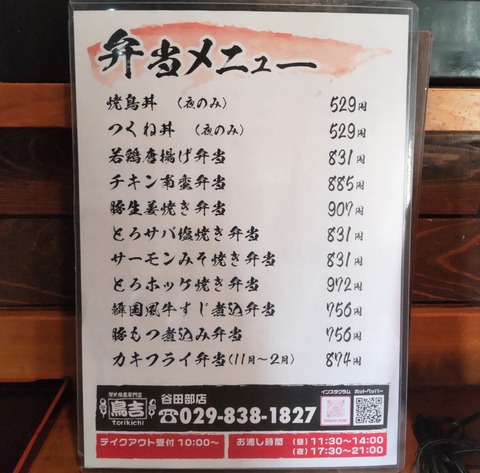 弁当メニュー
焼鳥丼 (夜のみ) 529円
つくね丼 (夜のみ) 529円
若鶏唐揚げ弁当 831円
チキン南蛮弁当 885円
豚生姜焼き弁当 907円
とろサバ塩焼き弁当 831円
サーモンみそ焼き弁当 831円
とろホッケ焼き弁当 972円
韓国風牛すじ煮込弁当 756円
豚もつ煮込み弁当 756円
カキフライ弁当(11月〜2月) 874円
鳥吉
torikichi
谷田部店
☎029-838-1827
インスタグラム
ホットペッパー
テイクアウト受付 10:00〜
お渡し時間 (昼) 11:30〜14:00
(夜) 17:30〜21:00